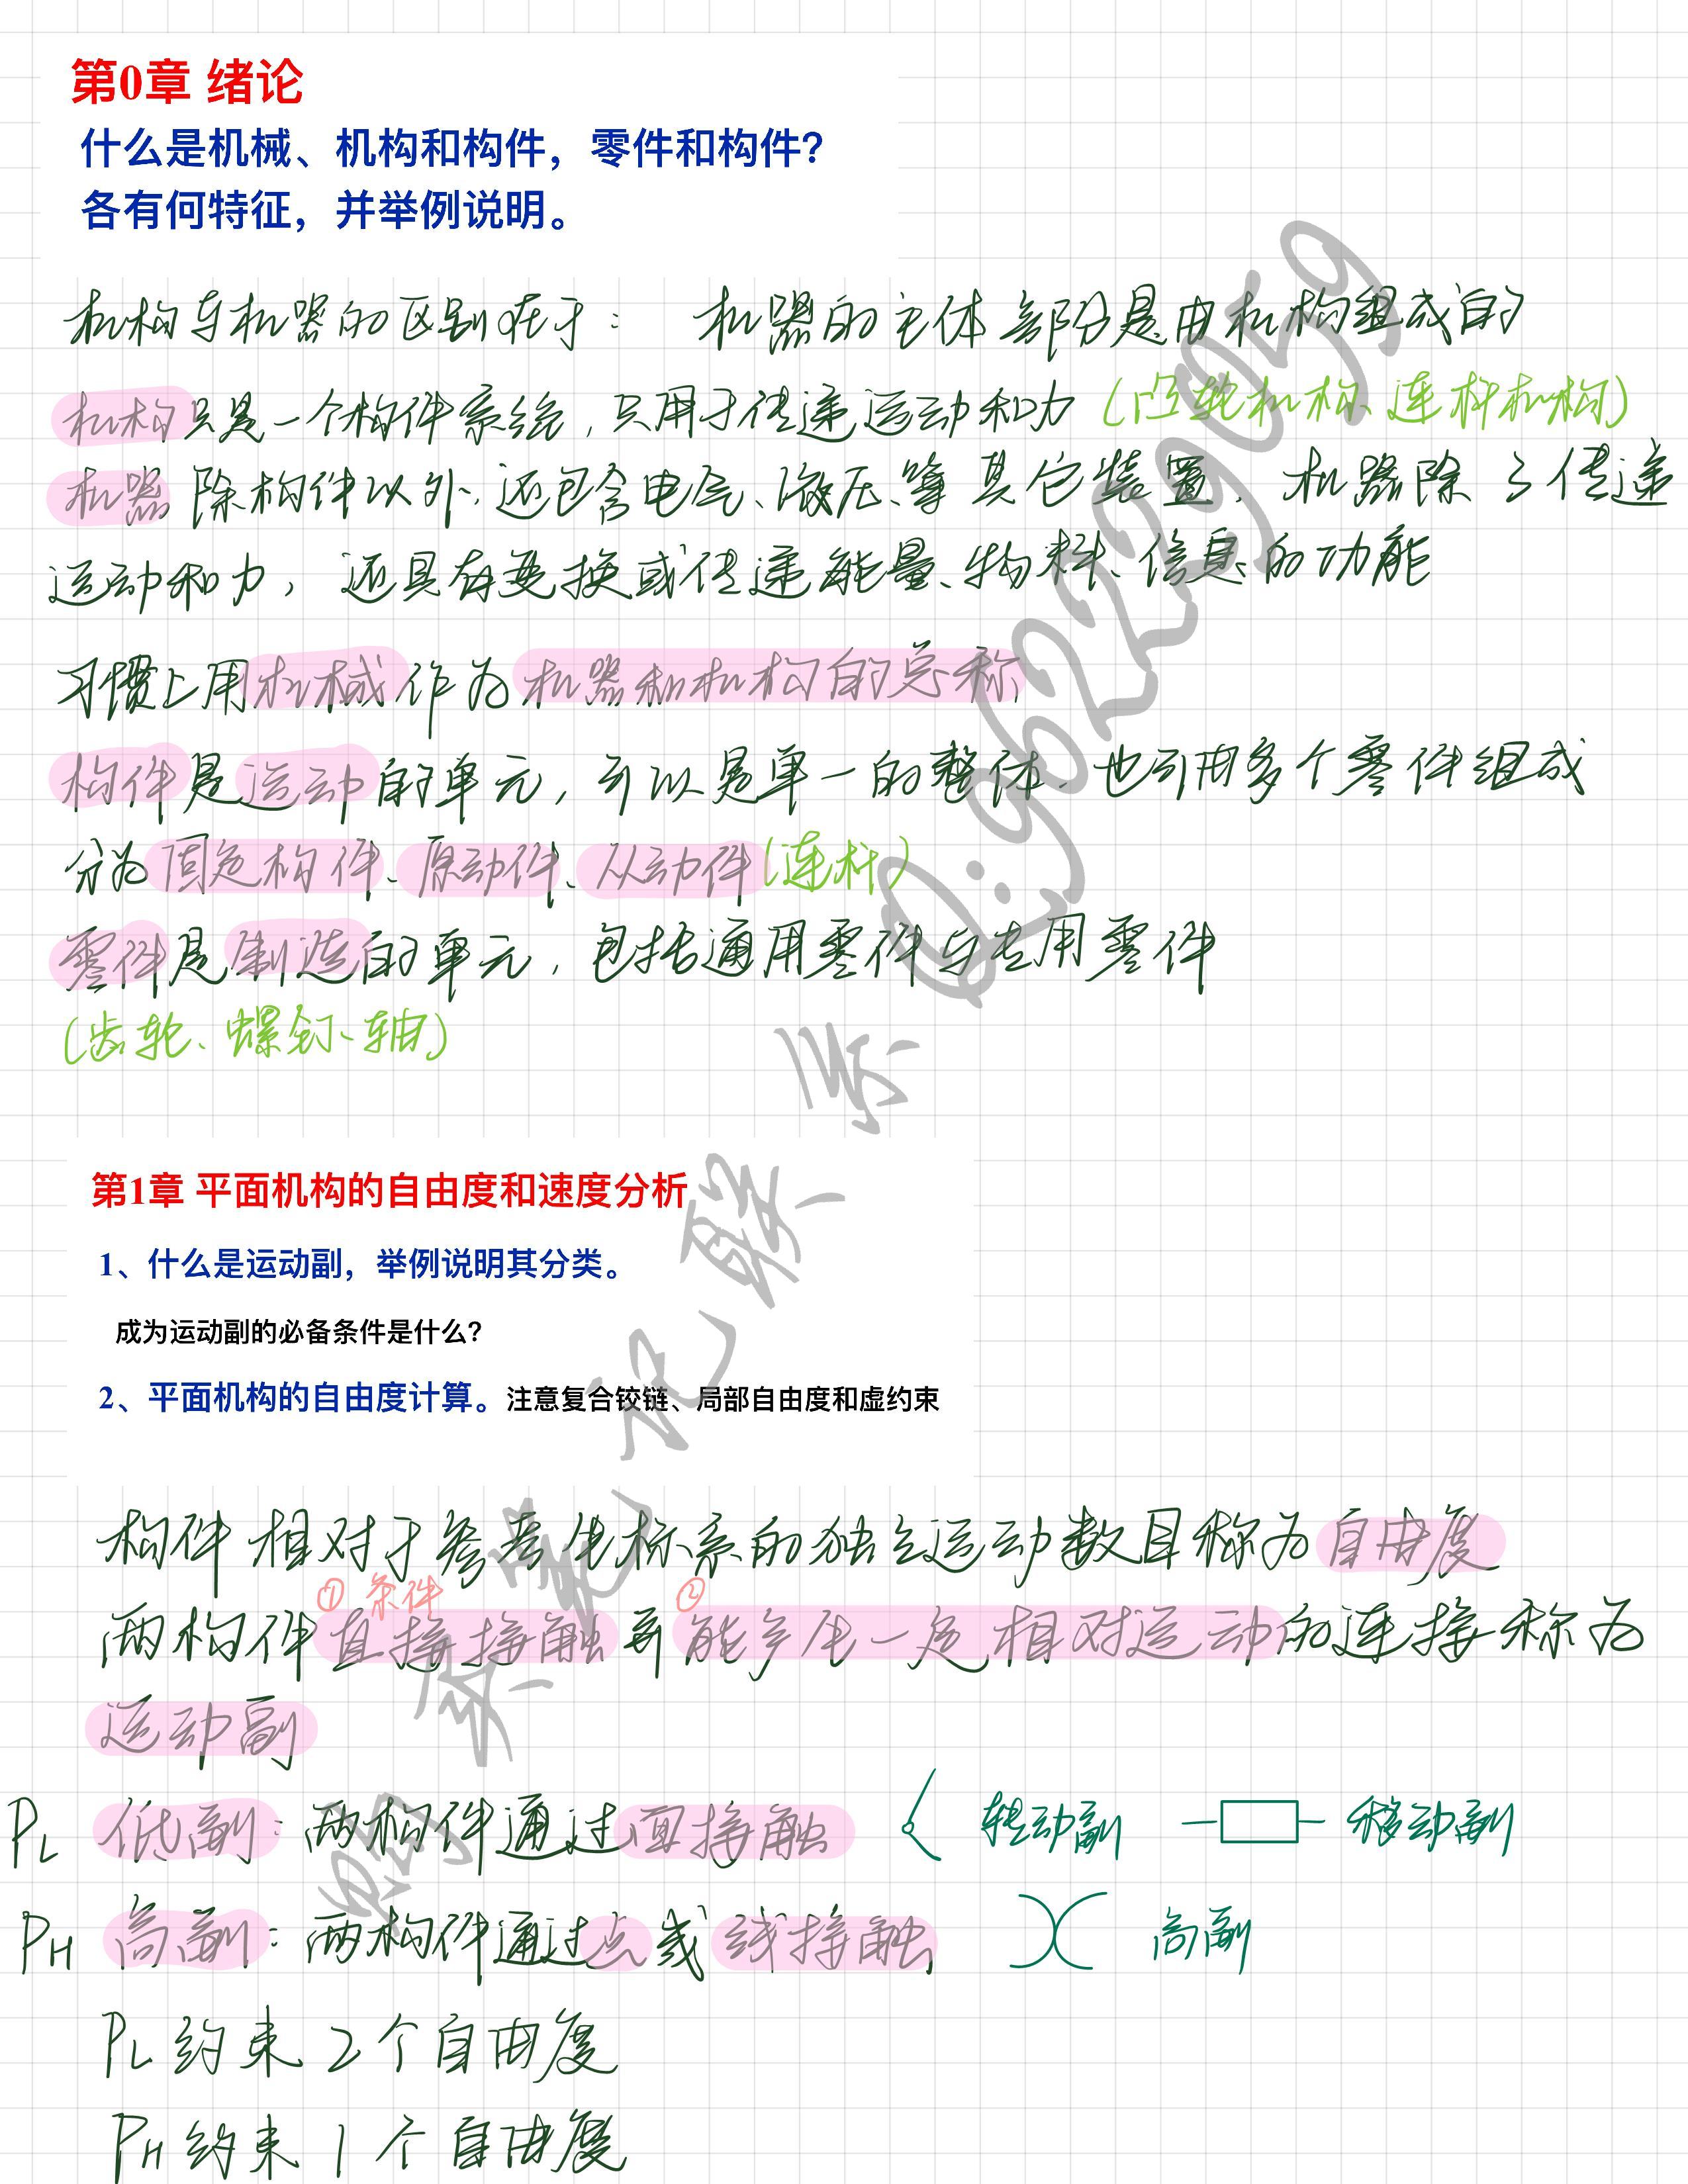 第0章 绪论
什么是机械、机构和构件，零件和构件？
各有何特征，并举例说明。
机构与机器的区别在于： 机器的主体部分是由机构组成的
机构只是一个构件系统，只用于传递运动和力（凸轮机构、连杆机构）
机器除构件以外，还包含电气、液压、等其它装置，机器除了传递
运动和力，还具有变换或传递能量、物料、信息的功能
习惯上用机械作为机器和机构的总称
构件是运动的单元，可以是单一的整体、也可由多个零件组成
分为固定构件、原动件、从动件（连杆）
零件是制造的单元，包括通用零件与专用零件
（齿轮、螺钉、轴）
第1章 平面机构的自由度和速度分析
1、什么是运动副，举例说明其分类。
成为运动副的必备条件是什么？
2、平面机构的自由度计算。注意复合铰链、局部自由度和虚约束
构件相对于参考坐标系的独立运动数目称为自由度
① 条件 ②
两构件直接接触并能产生一定相对运动的连接称为
运动副
PL 低副：两构件通过面接触 转动副 移动副
PH 高副：两构件通过点或线接触 高副
PL约束2个自由度
PH约束1个自由度
购买笔记联系Q:962229059